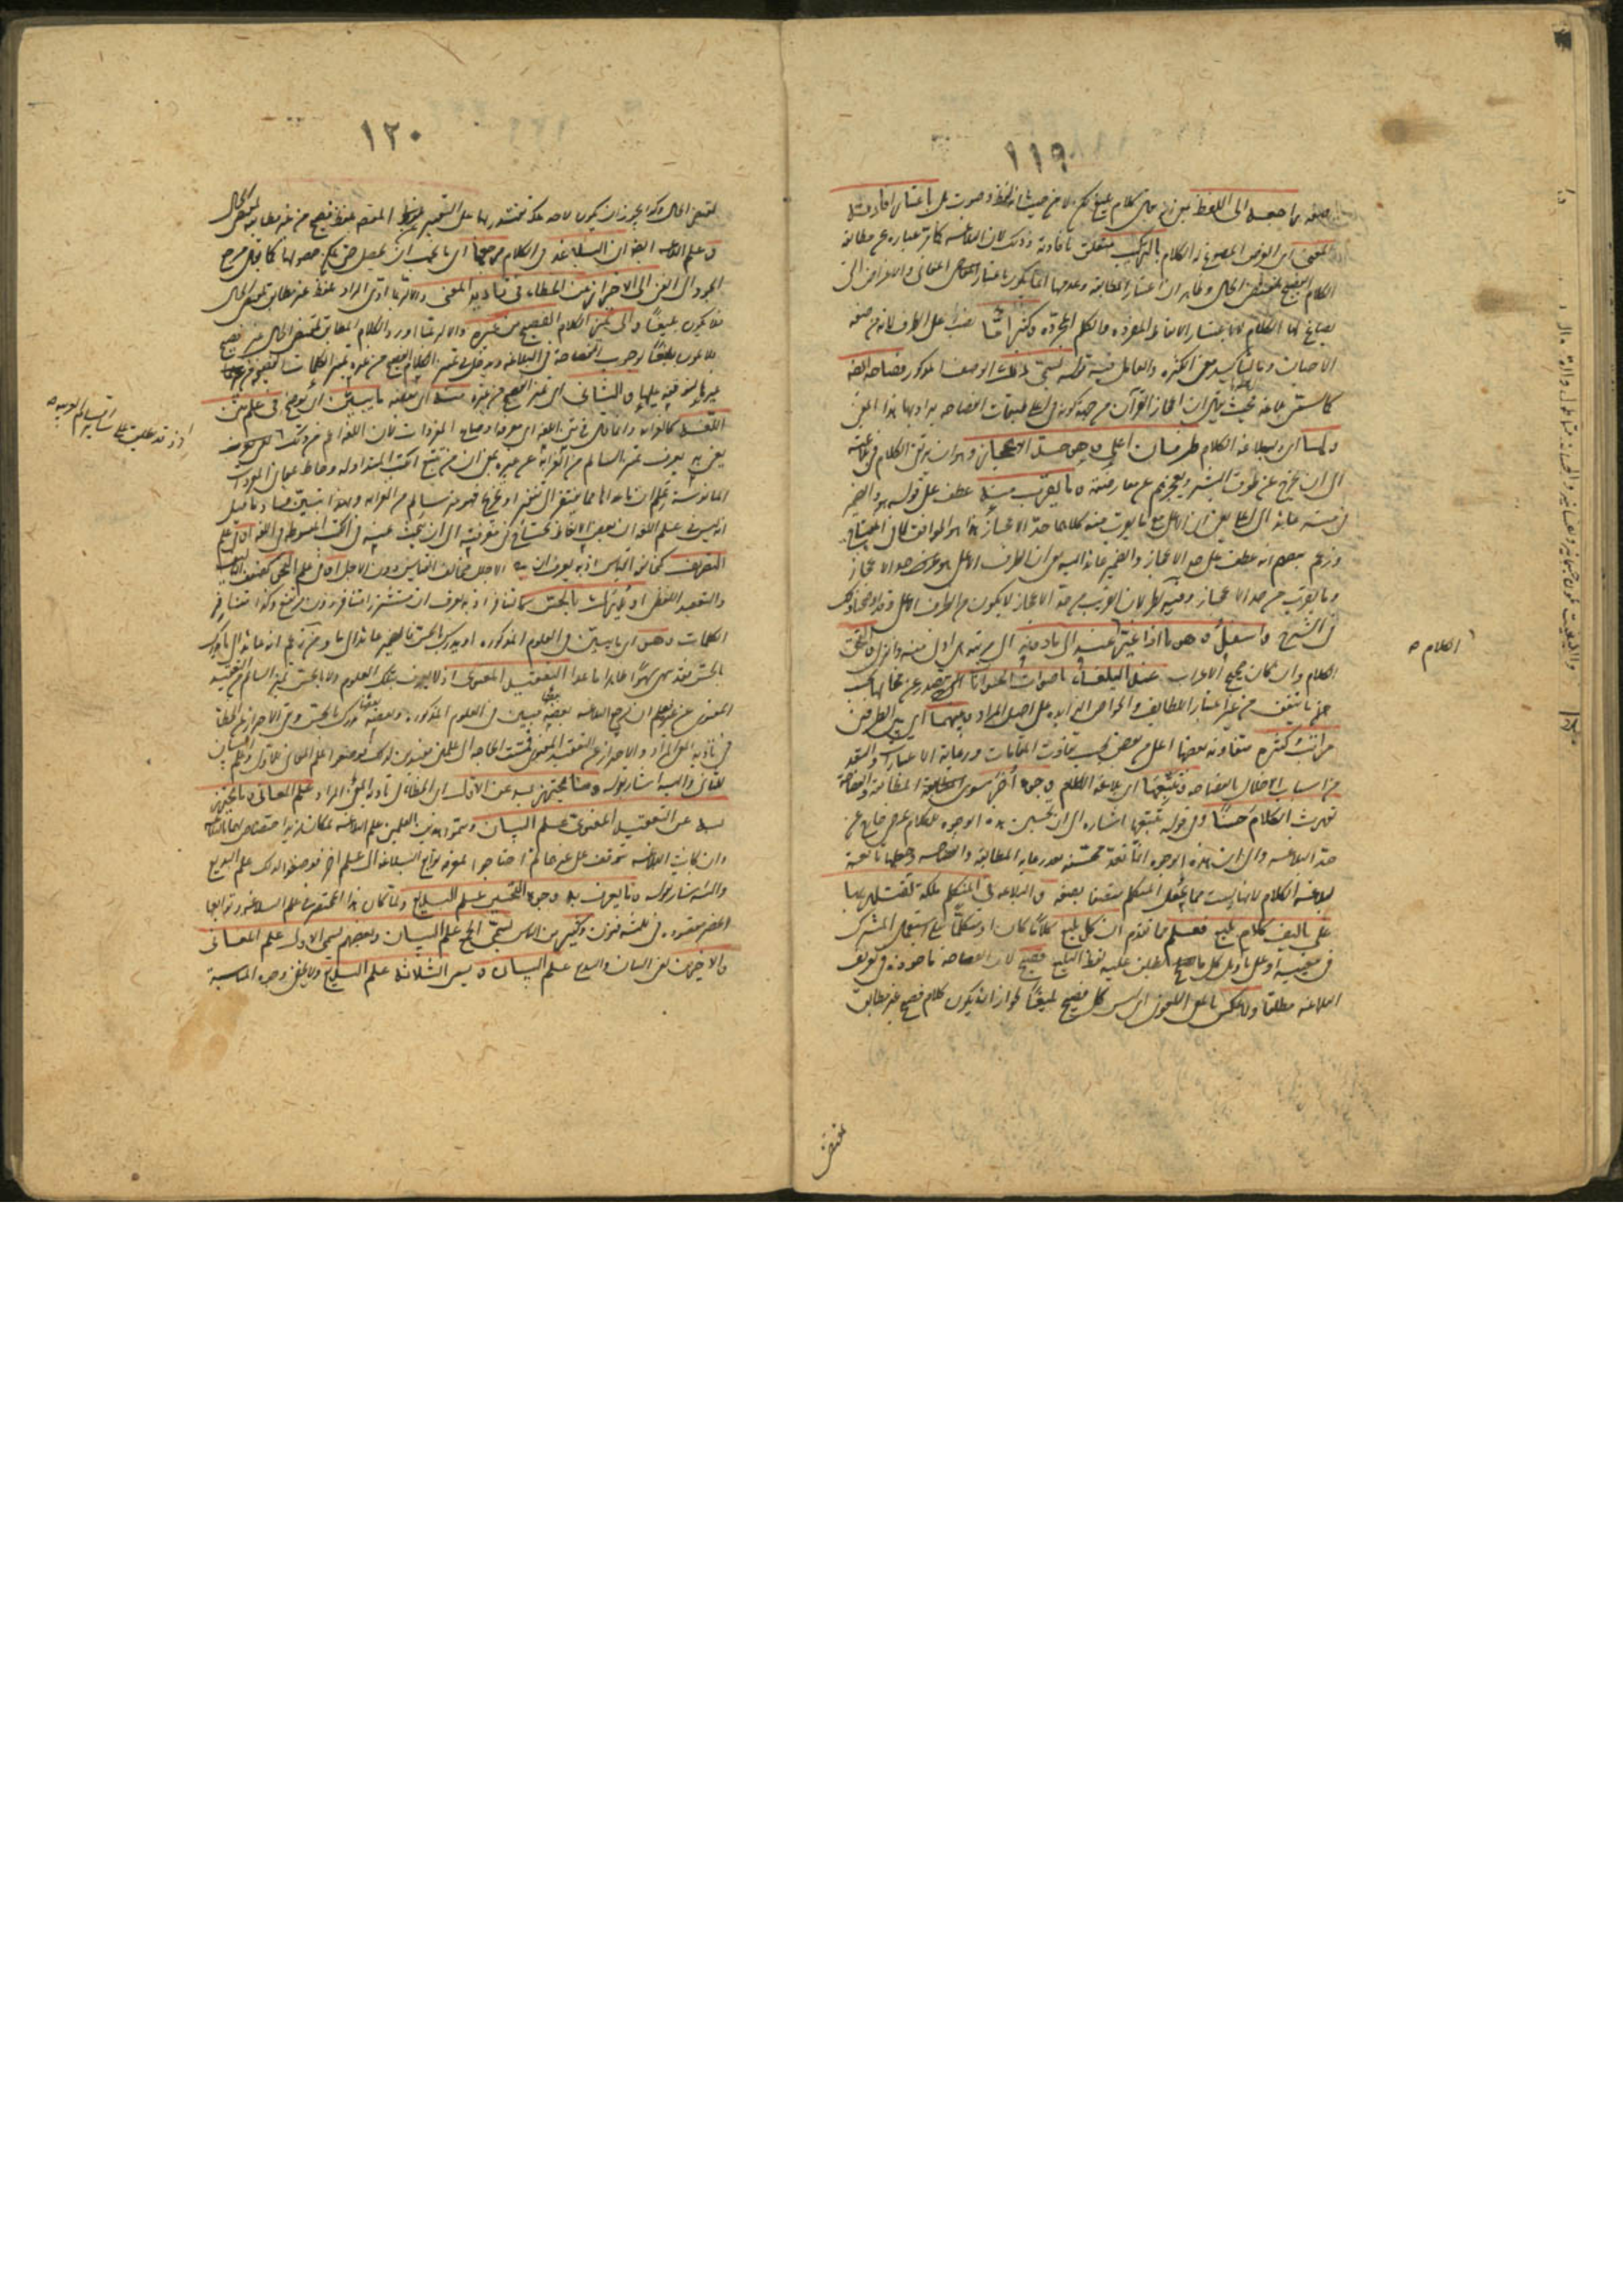 ١١٩
صفة راجعة الى اللفظ يعنى انه يقال كلام بليغ لكن لا من حيث انه لفظ وصوت بل باعتبار افادته
المعنى اى الغرض المصوغ له الكلام بالتركيب متعلق بافادته وذلك لان البلاغة كما مر عبارة عن مطابقة
الكلام الفصيح لمقتضى الحال وظاهر ان اعتبار المطابقة وعدمها انما يكون باعتبار المعانى والاغراض التى
يصاغ لها الكلام لا باعتبار الالفاظ المفردة والكلم المجردة وكثيرا ما نصب على الظرف لانه من صفة
الاحيان وما لتاكيد معنى الكثرة والعامل فيه قوله يسمى ذلك الوصف المذكور فصاحة ايضا
كما يسمى بلاغة فحيث يقال ان اعجاز القرآن من جهة كونه فى اعلى طبقات الفصاحة يراد بها هذا المعنى
ولها اى لبلاغة الكلام طرفان اعلى وهو حد الاعجاز وهو ان يرتقى الكلام فى بلاغته
الى ان يخرج عن طوق البشر ويعجزهم عن معارضته وما يقرب منه عطف على قوله هو والضمير
فى منه عائد الى اعلى يعنى ان الاعلى مع ما يقرب منه كلاهما حد الاعجاز هذا هو الموافق لما فى المفتاح
وزعم بعضهم انه عطف على حد الاعجاز والضمير عائد اليه يعنى ان الطرف الاعلى هو حد الاعجاز
وما يقرب من حد الاعجاز وفيه نظر لان القريب من حد الاعجاز لا يكون من الطرف الاعلى وقد اوضحنا ذلك
فى الشرح واسفل وهو ما اذا غير عنه الى ما دونه اى مرتبة هى ادنى منه وانزل التحق
الكلام وان كان صحيح الاعراب عند البلغاء باصوات الحيوانات التى تصدر عن محالها بحسب
ما يتفق من غير اعتبار اللطايف والخواص الزائدة على اصل المراد وبينهما اى بين الطرفين
مراتب كثيرة متفاوتة بعضها اعلى من بعض بحسب تفاوت المقامات ورعاية الاعتبارات والبعد
من اسباب الاخلال بالفصاحة وتتبعها اى بلاغة الكلام وجوه اخر سوى المطابقة والفصاحة
تورث الكلام حسنا وفى قوله تتبعها اشارة الى ان تحسين هذه الوجوه للكلام عرضى خارج عن
حد البلاغة والى ان هذه الوجوه انما تعد محسنة بعد رعاية المطابقة والفصاحة وجعلها تابعة
لبلاغة الكلام لانها ليست مما يجعل المتكلم متصفا بصفة والبلاغة فى المتكلم ملكة يقتدر بها
على تاليف كلام بليغ فعلم مما تقدم ان كل بليغ كلاما كان او متكلما على استعمال المشترك
فى معنييه او على تاويل كل ما يطلق عليه لفظ البليغ فصيح لان الفصاحة ماخوذة فى تعريف
البلاغة مطلقا ولا عكس بالمعنى اللغوى اى ليس كل فصيح بليغا لجواز ان يكون كلام فصيح غير مطابق
الكلام
١٢٠
لمقتضى الحال وكذا يجوز ان يكون لاحد ملكة يقتدر بها على التعبير عن المقصود بلفظ فصيح من غير مطابقة لمقتضى الحال
وعلم ايضا ان البلاغة فى الكلام مرجعها اى ما يجب ان يحصل حتى يمكن حصولها كما يقال مرجع
الجود الى الغنى الى الاحتراز عن الخطاء فى تادية المعنى والا لربما ادى المراد بلفظ غير مطابق لمقتضى الحال
فلا يكون بليغا والى تمييز الكلام الفصيح من غيره والا لربما اورد الكلام المطابق لمقتضى الحال غير فصيح
فلا يكون بليغا لوجوب الفصاحة فى البلاغة ويدخل فى تمييز الكلام الفصيح من غيره تمييز الكلمات الفصيحة من
غيرها لتوقفه عليها والثانى اى تمييز الفصيح من غيره منه اى بعضه ما يبين اى يوضح فى علم متن
اللغة كالغرابة وانما قال فى متن اللغة اى معرفة اوضاع المفردات لان اللغة اعم من ذلك
يعنى به يعرف تمييز السالم من الغرابة عن غيره بمعنى ان من تتبع الكتب المتداولة واحاط بمعانى المفردات
المانوسة علم ان ما عداها مما يفتقر الى تنقير او تخريج فهو غير سالم من الغرابة وبهذا يتبين فساد ما قيل
انه ليس فى علم اللغة ان بعض الالفاظ يحتاج فى معرفته الى ان يبحث عنه فى الكتب المبسوطة فى اللغة او فى علم
التصريف كمخالفة القياس اذ به يعرف ان الاجلل مخالف للقياس دون الاجل او فى علم النحو كضعف التاليف
والتعقيد اللفظى او يدرك بالحس كالتنافر اذ به يعرف ان مستشزرا متنافر دون مرتفع وكذا تنافر
الكلمات وهو اى ما يبين فى العلوم المذكورة او يدرك بالحس فالضمير عائد الى ما ومن زعم انه عائد الى ما يدرك
بالحس فقد سهى سهوا ظاهرا ما عدا التعقيد المعنوى اذ لا يعرف بتلك العلوم ولا بالحس تمييز السالم من التعقيد
المعنوى عن غيره فعلم ان مرجع البلاغة بعضه مبين فى العلوم المذكورة وبعضه مدرك بالحس وبقى الاحتراز عن الخطاء
فى تادية المعنى المراد والاحتراز عن التعقيد المعنوى فمست الحاجة الى علمين مفيدين لذلك فوضعوا علم المعانى للاول وعلم البيان
للثانى واليه اشار بقوله وما يحترز به عن الاول اى الخطاء فى تادية المعنى المراد علم المعانى وما يحترز
به عن التعقيد المعنوى علم البيان وسموا هذين العلمين علم البلاغة لمكان مزيد اختصاص لهما بالبلاغة
وان كانت البلاغة تتوقف على غيرهما ثم احتاجوا لمعرفة توابع البلاغة الى علم اخر فوضعوا لذلك علم البديع
واليه اشار بقوله وما يعرف به وجوه التحسين علم البديع ولما كان هذا المختصر فى علم البلاغة وتوابعها
انحصر مقصوده فى ثلثة فنون وكثير من الناس يسمى الجميع علم البيان وبعضهم يسمى الاول علم المعانى
والاخيرين يعنى البيان والبديع علم البيان و يسمى الثلاثة علم البديع ولا يخفى وجوه المناسبة